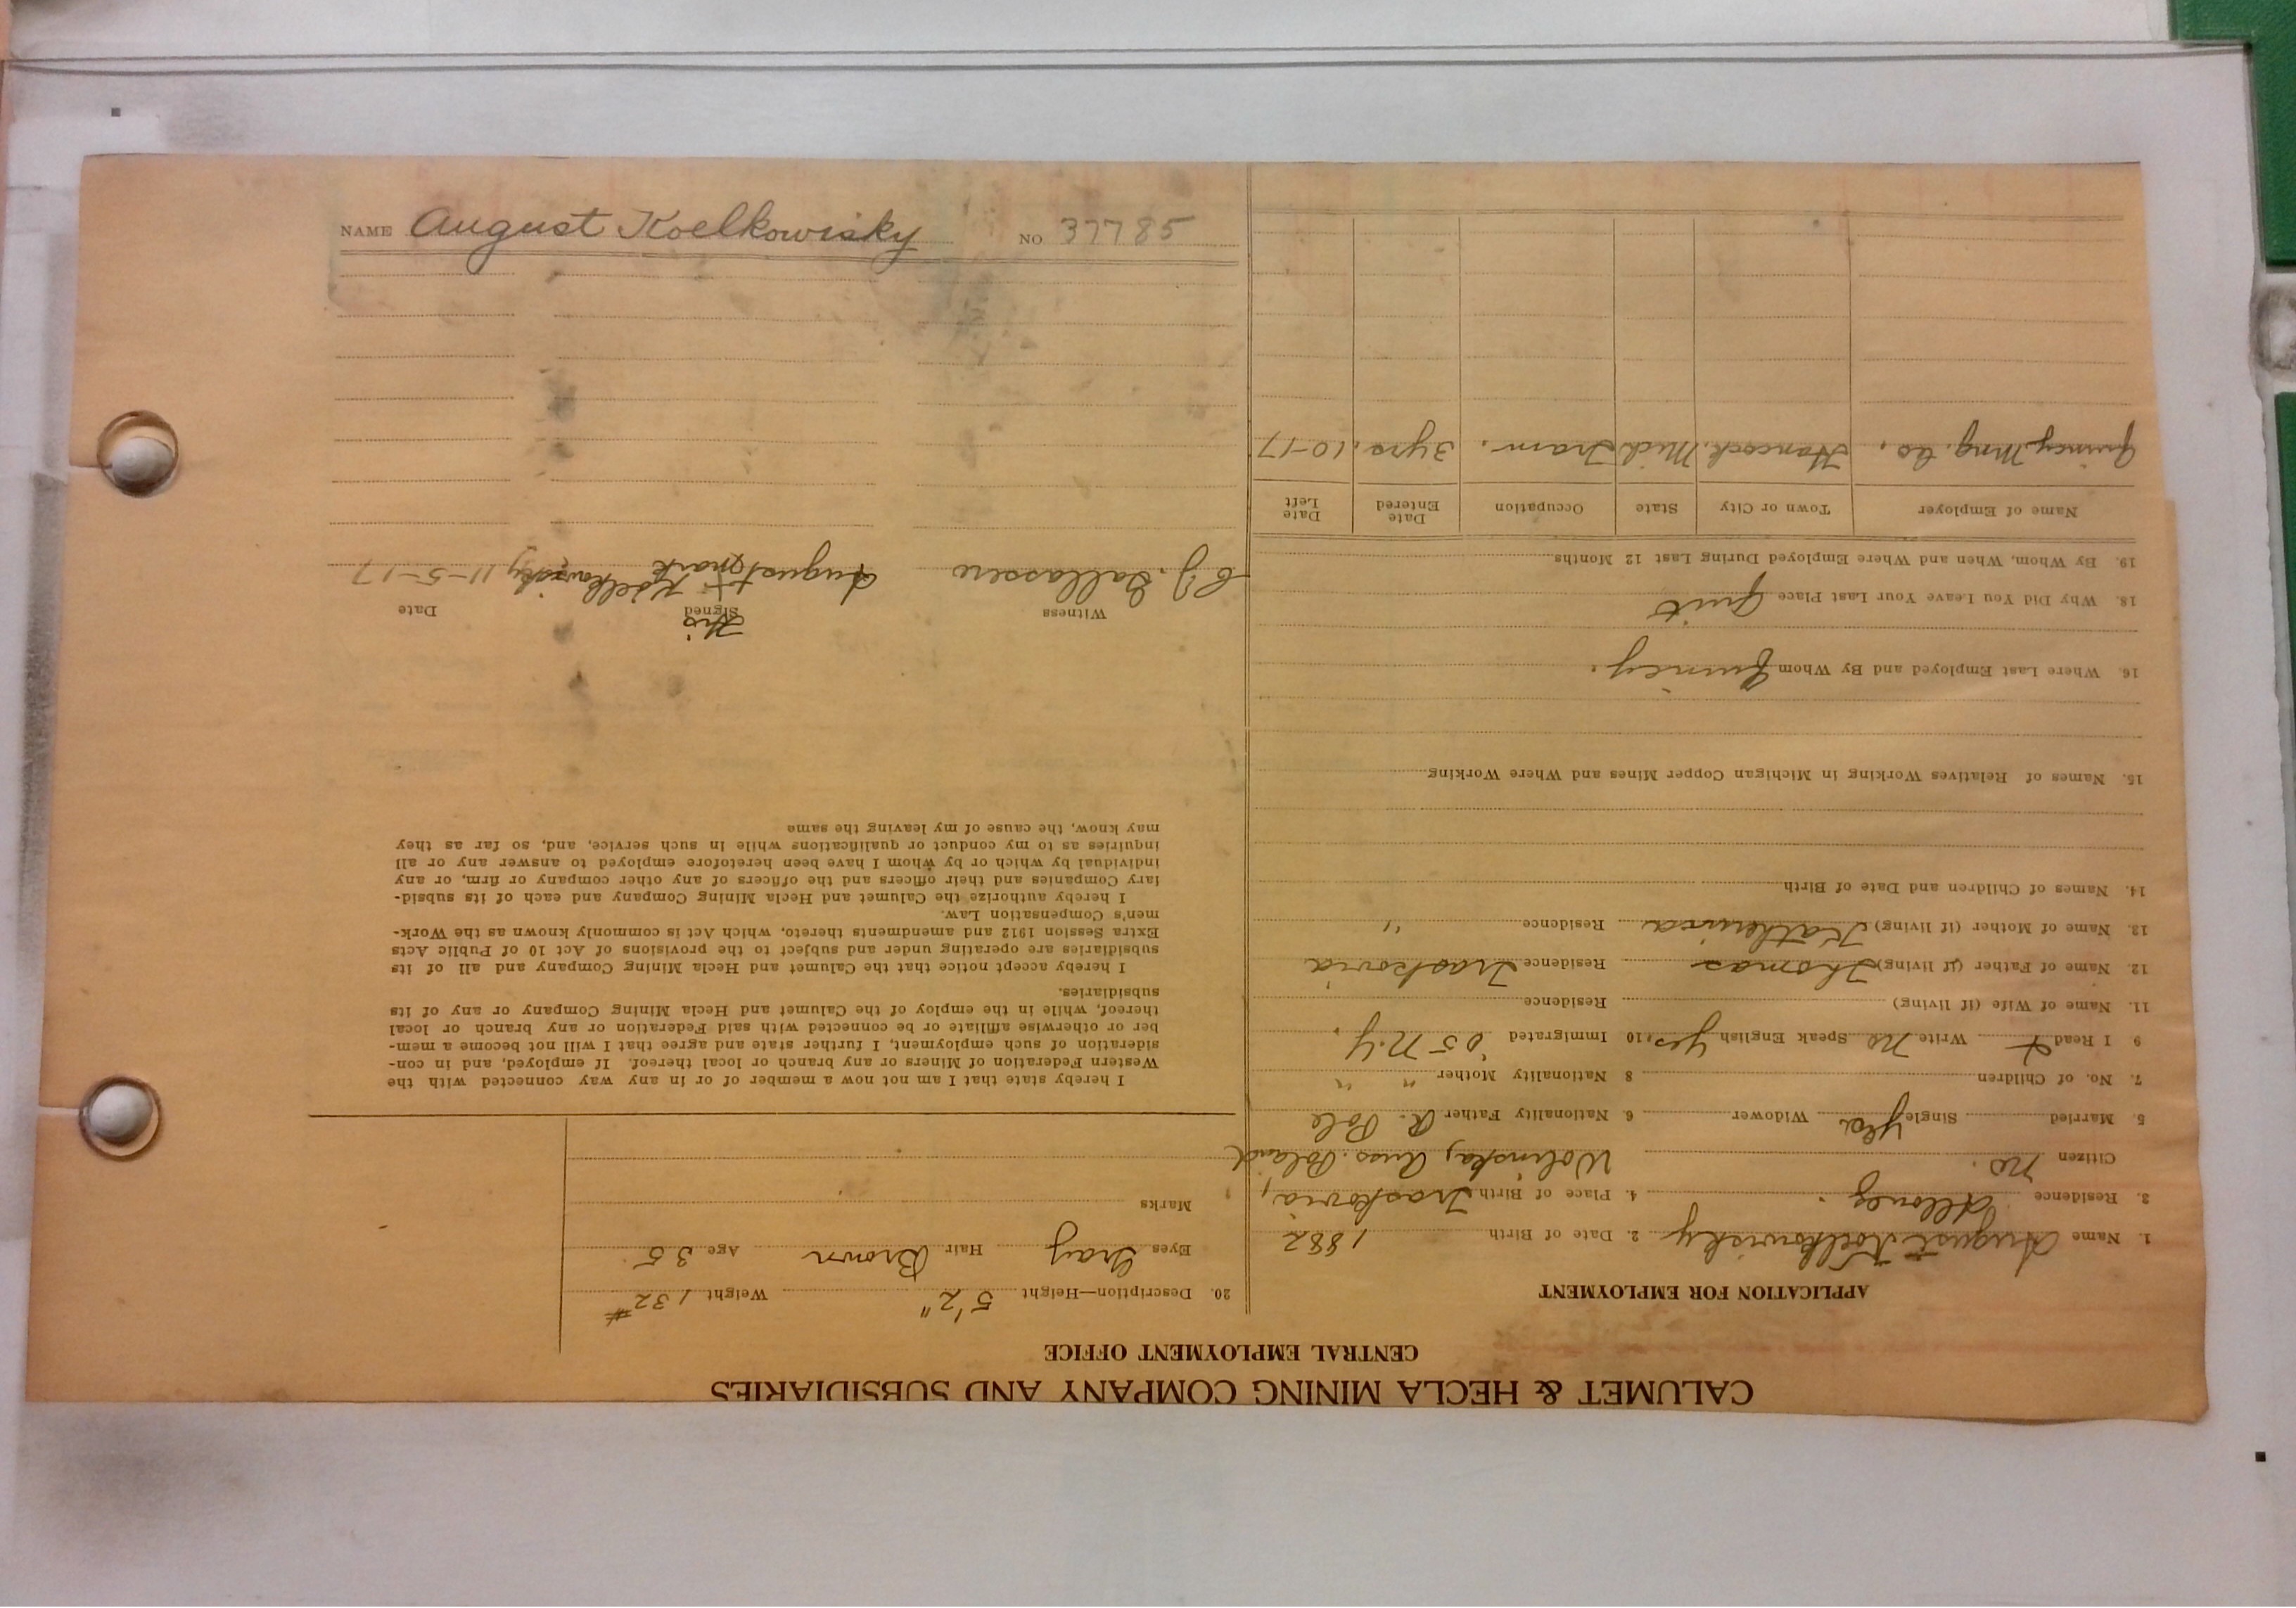 NAME August Koelkowisky NO 37785
CALUMET & HECLA MINING COMPANY AND SUBSIDIARIES
CENTRAL EMPLOYMENT OFFICE
APPLICATION FOR EMPLOYMENT
1. Name August Koelkowisky 2. Date of Birth 1882
3. Residence Allouez. 4. Place of Birth Traskovia,
Citizen No. Wolinska, Russ. Poland
5. Married Single Yes Widower 6. Nationality Father R. Pole
7. No. of Children 8 Nationality Mother " "
9 I Read Write No Speak English Yes 10 Immigrated '05 N.Y.
11. Name of Wife (if living) Residence
12. Name of Father (if living) Thomas Residence Traskovia
13. Name of Mother (if living) Katherina Residence "
14. Names of Children and Date of Birth
15. Names of Relatives Working in Michigan Copper Mines and Where Working
16. Where Last Employed and By Whom Quincy.
18. Why Did You Leave Your Last Place Quit
19. By Whom, When and Where Employed During Last 12 Months
Name of Employer Town or City State Occupation Date Entered Date Left
Quincy Mng. Co. Hancock. Mich Tram. 3 yrs. 10-17
20. Description—Height 5'2" Weight 132#
Eyes Gray Hair Brown Age 35
Marks
I hereby state that I am not now a member of or in any way connected with the
Western Federation of Miners or any branch or local thereof. If employed, and in con-
sideration of such employment, I further state and agree that I will not become a mem-
ber or otherwise affiliate or be connected with said Federation or any branch or local
thereof, while in the employ of the Calumet and Hecla Mining Company or any of its
subsidiaries.
I hereby accept notice that the Calumet and Hecla Mining Company and all of its
subsidiaries are operating under and subject to the provisions of Act 10 of Public Acts
Extra Session 1912 and amendments thereto, which Act is commonly known as the Work-
men's Compensation Law.
I hereby authorize the Calumet and Hecla Mining Company and each of its subsid-
iary Companies and their officers and the officers of any other company or firm, or any
individual by which or by whom I have been heretofore employed to answer any or all
inquiries as to my conduct or qualifications while in such service, and, so far as they
may know, the cause of my leaving the same
Witness Signed Date
His
C.J. Gallassero August + Koelkowisky 11-5-17
mark